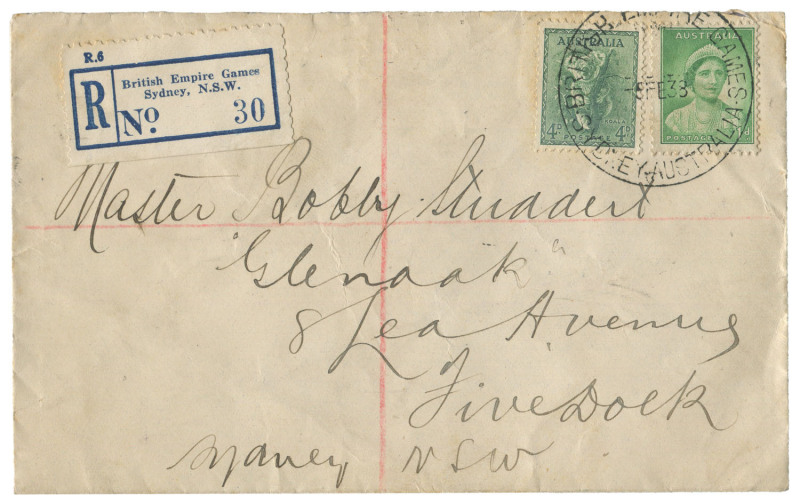 R.6
R
British Empire Games
Sydney, N.S.W.
No 30
AUSTRALIA
KOALA
4D 4D
POSTAGE
AUSTRALIA
POSTAGE
BRITISH EMPIRE GAMES
FE38
SYDNEY·AUSTRALIA
Master Bobby Studdert
"Glenoak"
8 Lea Avenue
Five Dock
Sydney NSW